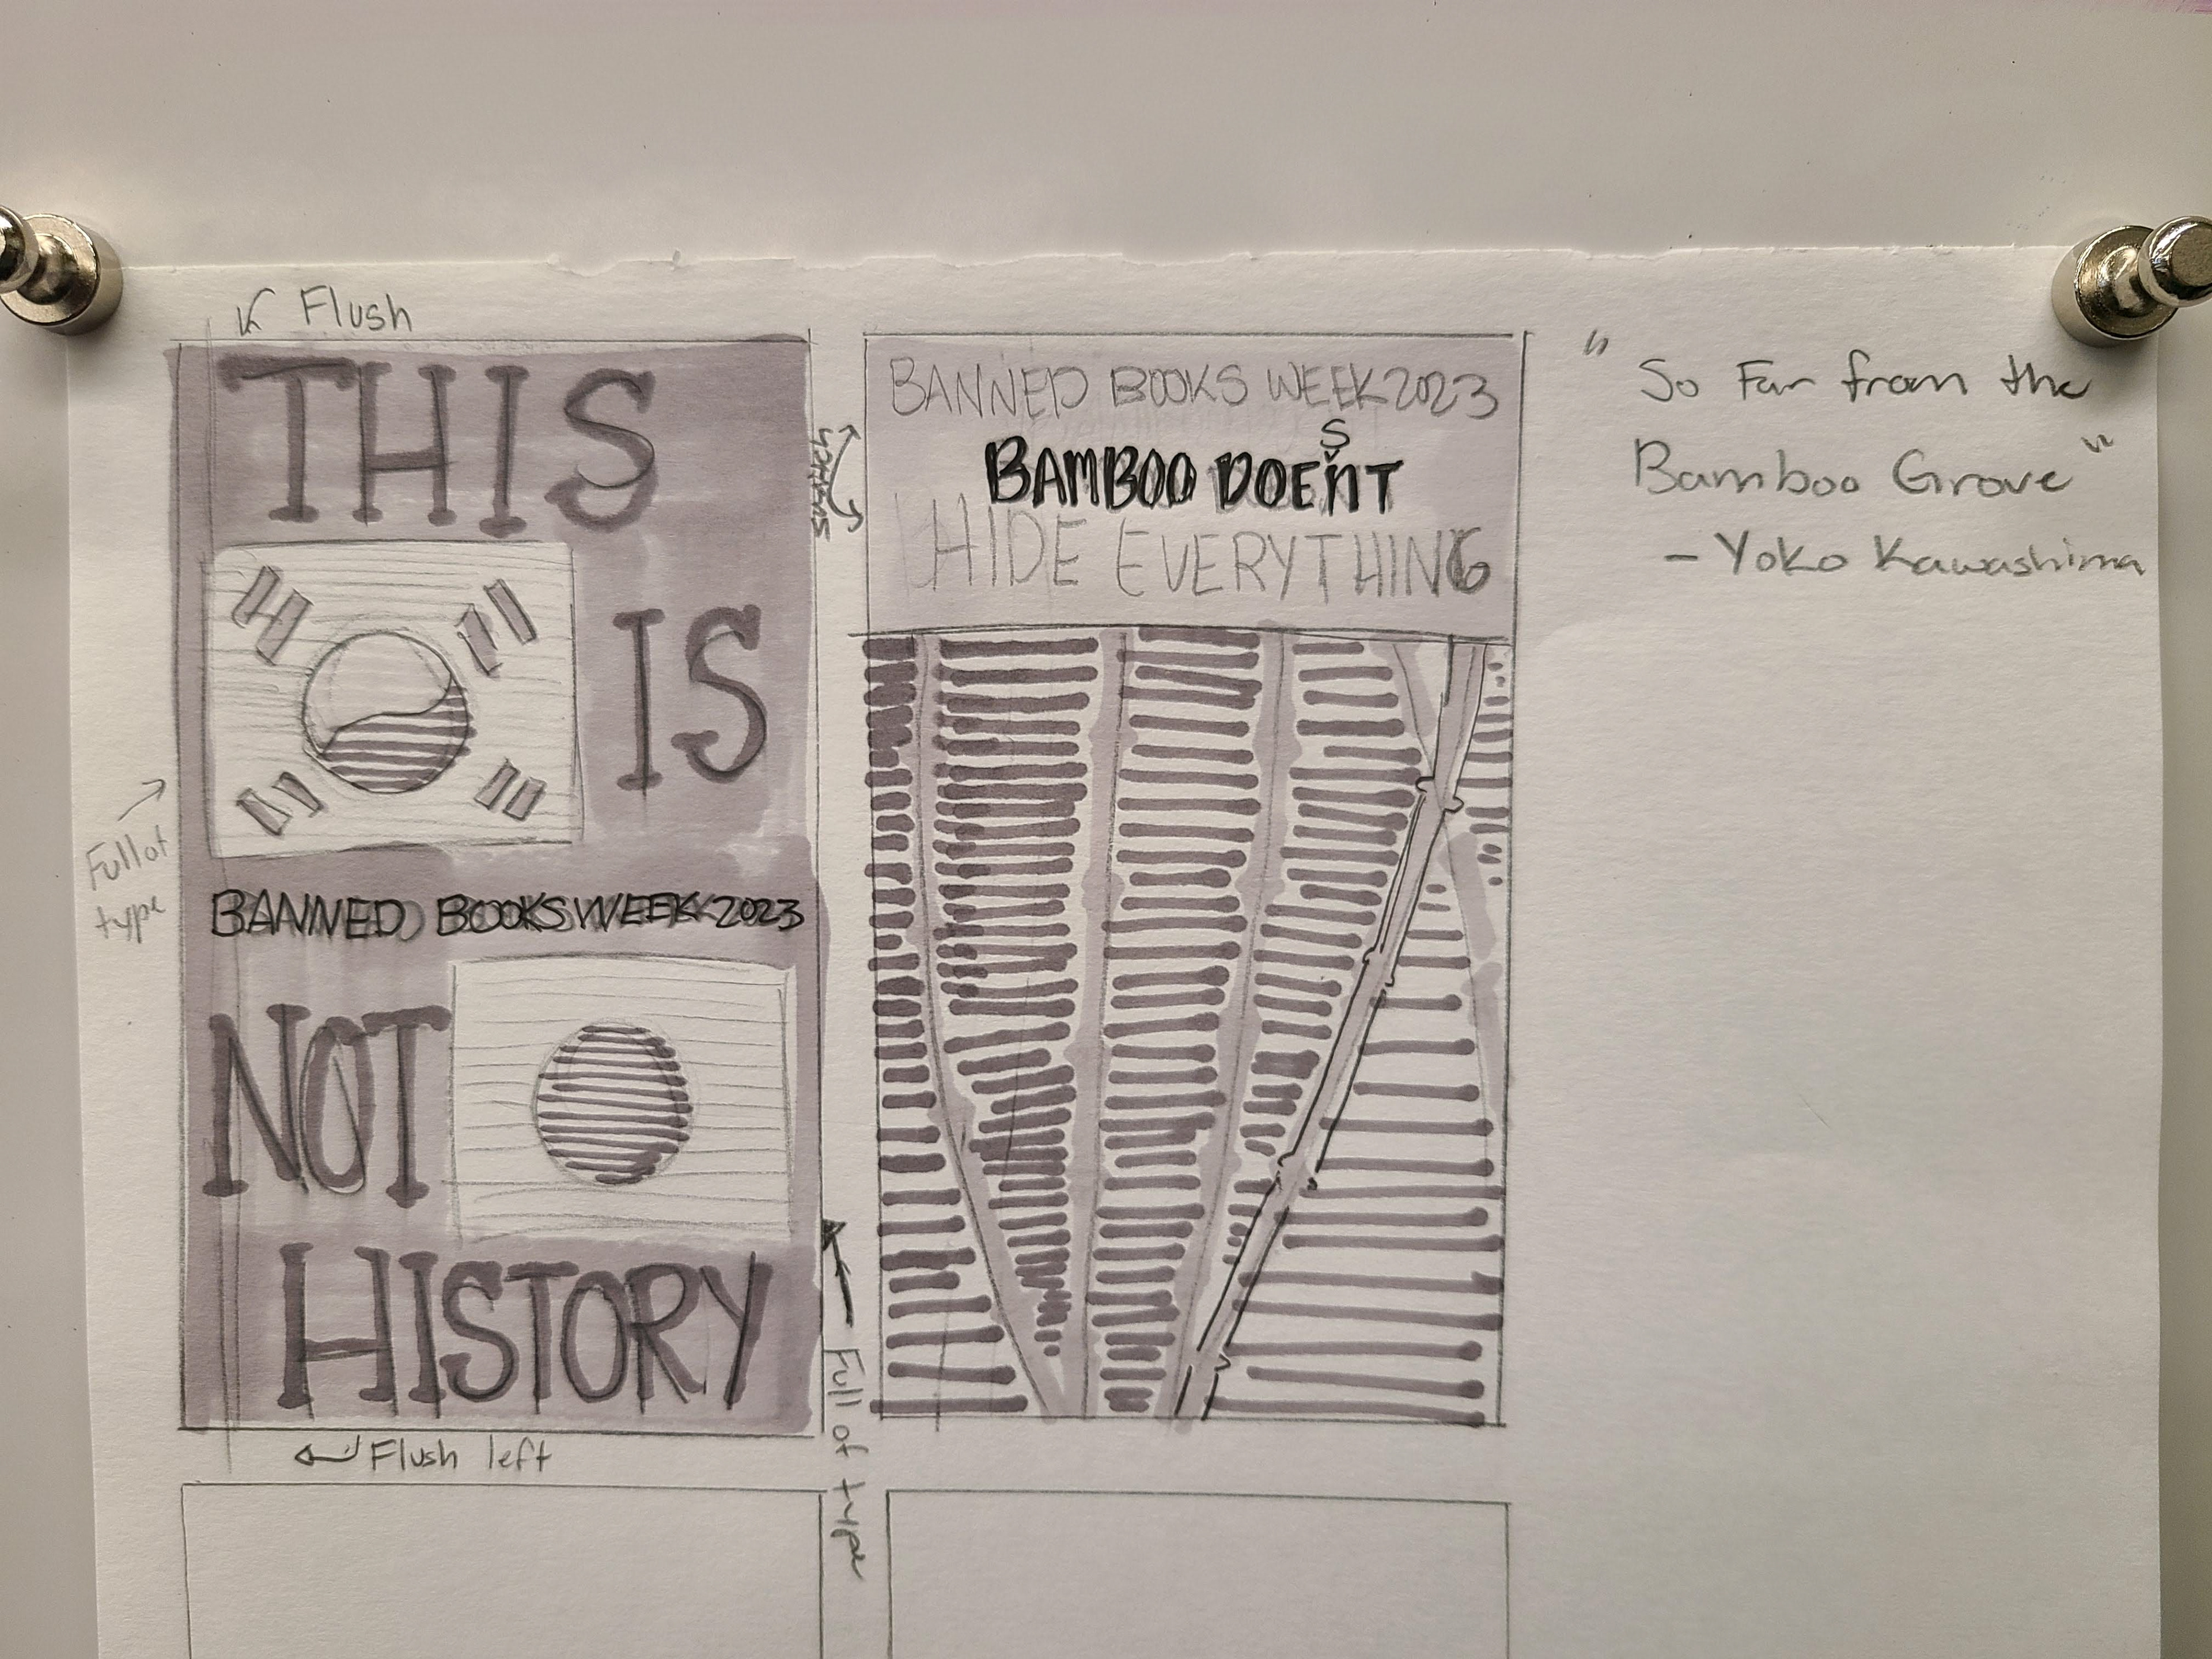 Flush
THIS
IS
BANNED BOOKS WEEK 2023
NOT
HISTORY
Flush left
Full of
type
Full of type
SWITCH
BANNED BOOKS WEEK 2023
S
BAMBOO DOEN'T
HIDE EVERYTHING
"So Far from the
Bamboo Grove"
- Yoko Kawashima